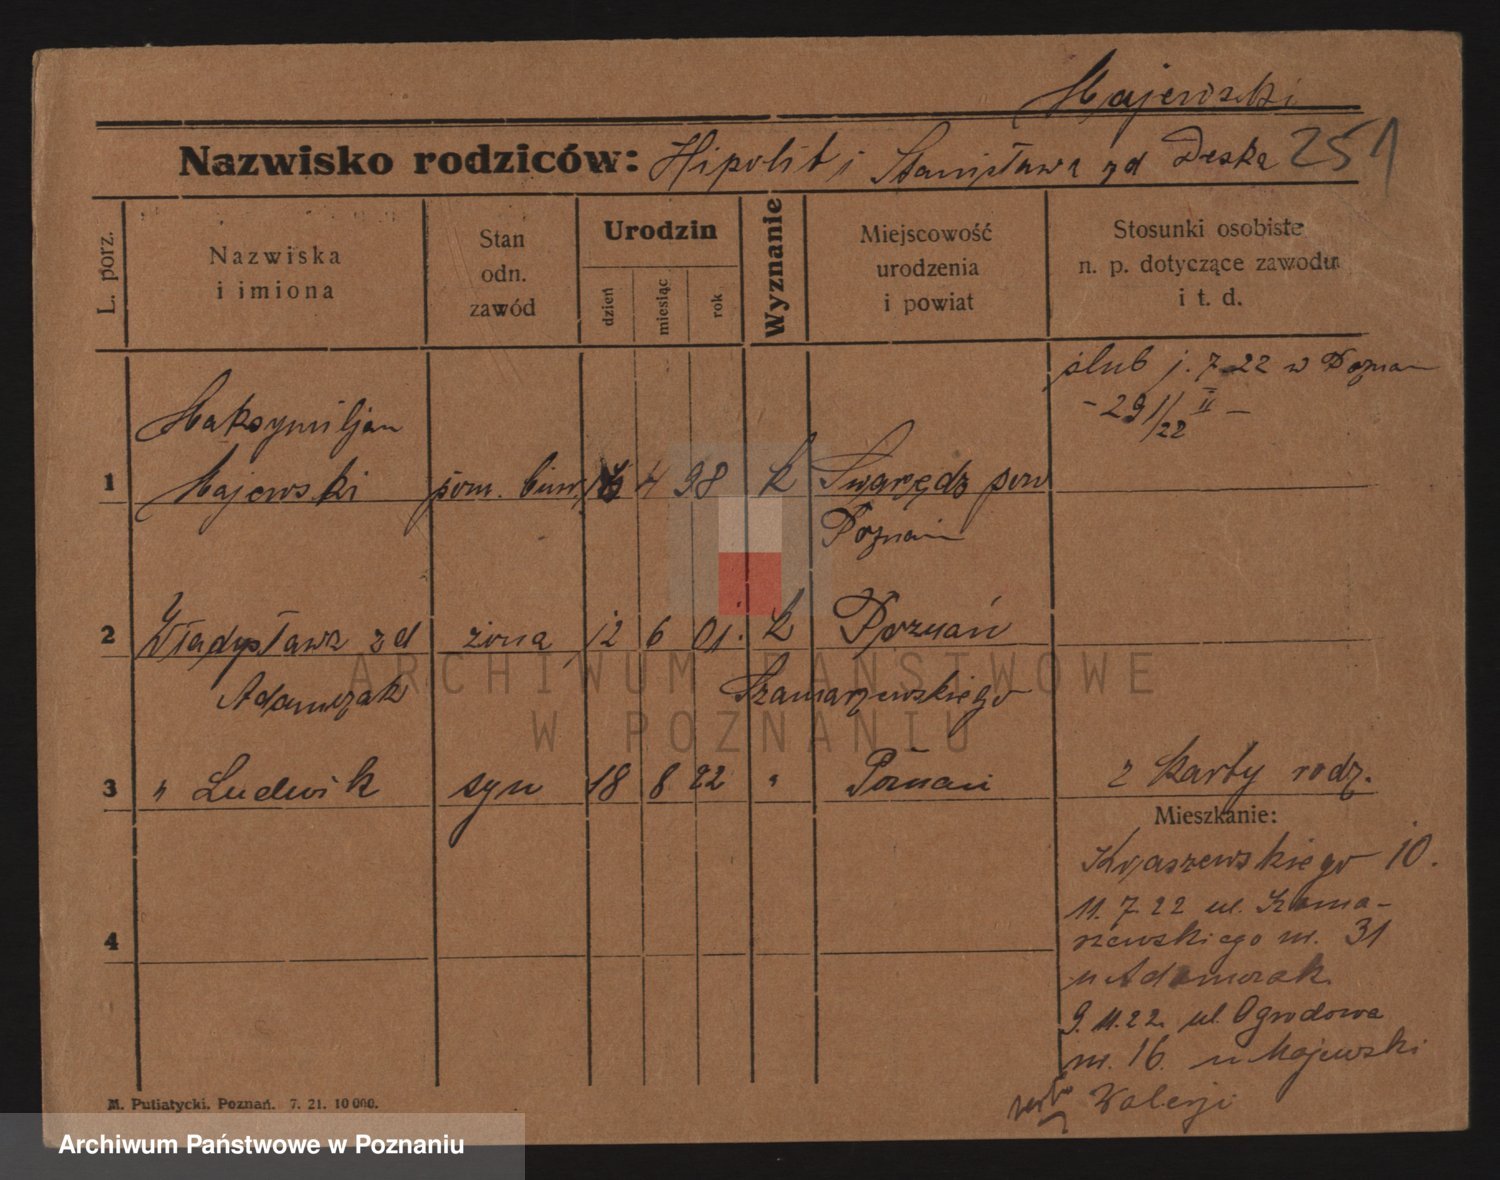 Majewski
Nazwisko rodziców: Hipolit i Stanisława zd Deska 251
L. porz.
Nazwiska
i imiona
Stan
odn.
zawód
Urodzin
dzień
miesiąc
rok
Wyznanie
Miejscowość
urodzenia
i powiat
Stosunki osobiste
n. p. dotyczące zawodu
i t. d.
ślub j. 7 22 w Poznan
- 291/22 II -
Maksymiljan
1 Majewski pom. biur. 4 98 k Swarzędz pow
Poznań
2 Władysława zd żona 12 6 01. k Poznań
Adamczak Szamarzewskiego
3 " Ludwik syn 18 8 22 " Poznań z karty rodz.
Mieszkanie:
Kraszewskiego 10.
11. 7 22 ul. Szama-
rzewskiego m. 31
u Adamczak
4
9. 11. 22 ul. Ogrodowa
m. 16. u Majewski
Walerji
M. Putiatycki. Poznań. 7. 21. 10 000.
ARCHIWUM PAŃSTWOWE
W POZNANIU
Archiwum Państwowe w Poznaniu